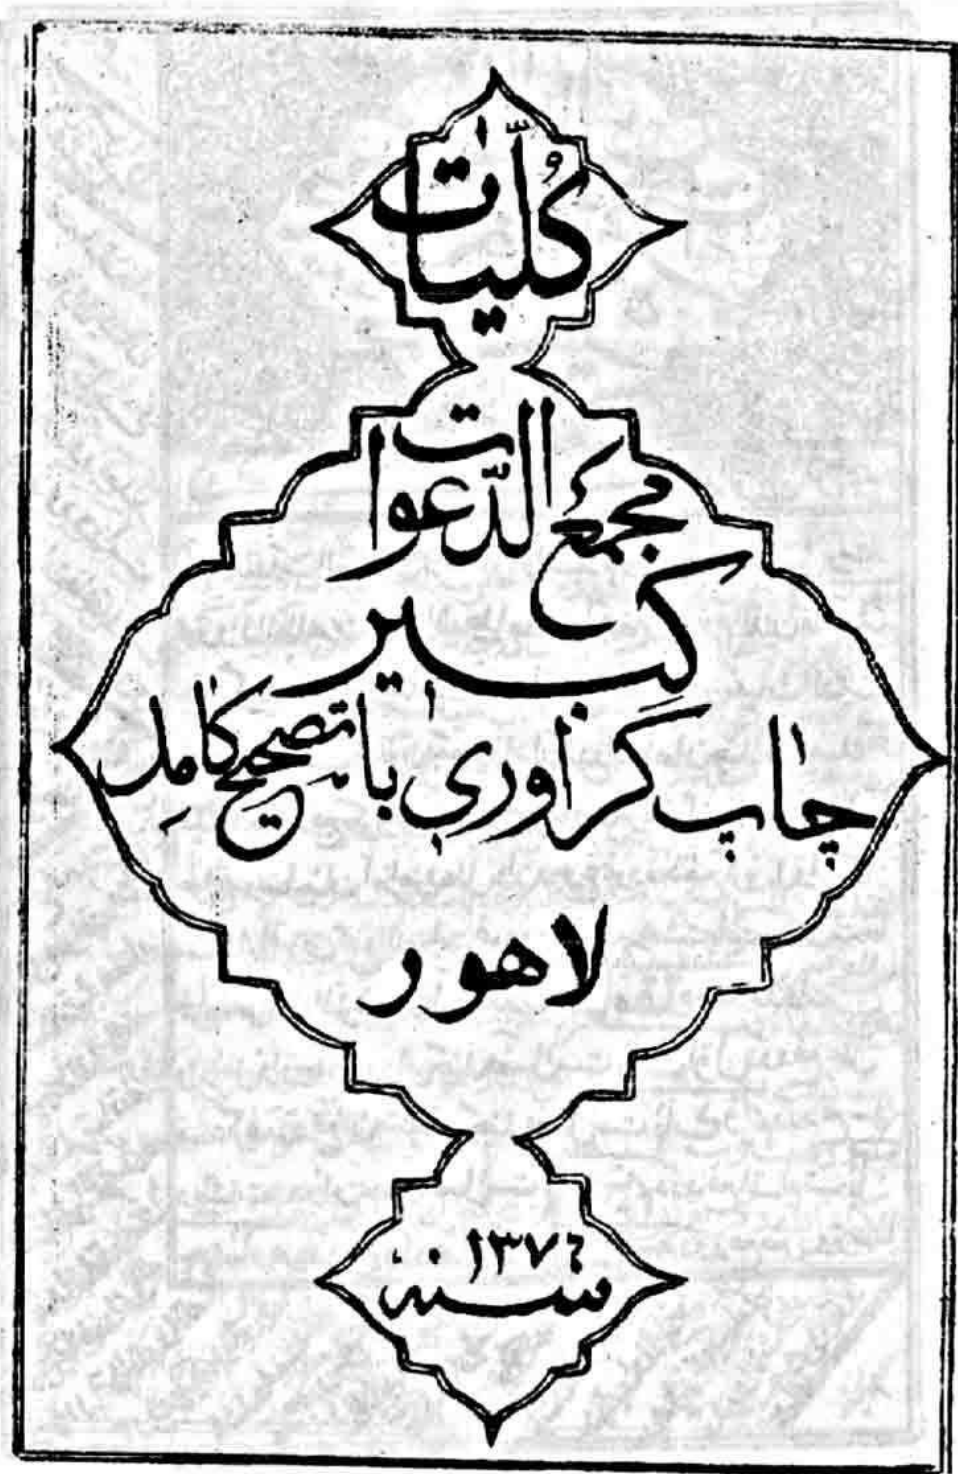 كُلّیّات
مَجمَعُ الدَّعوات
کبیر
چاپ گراوری با تصحیح کامِل
لاهور
سنه ۱۳۷٤